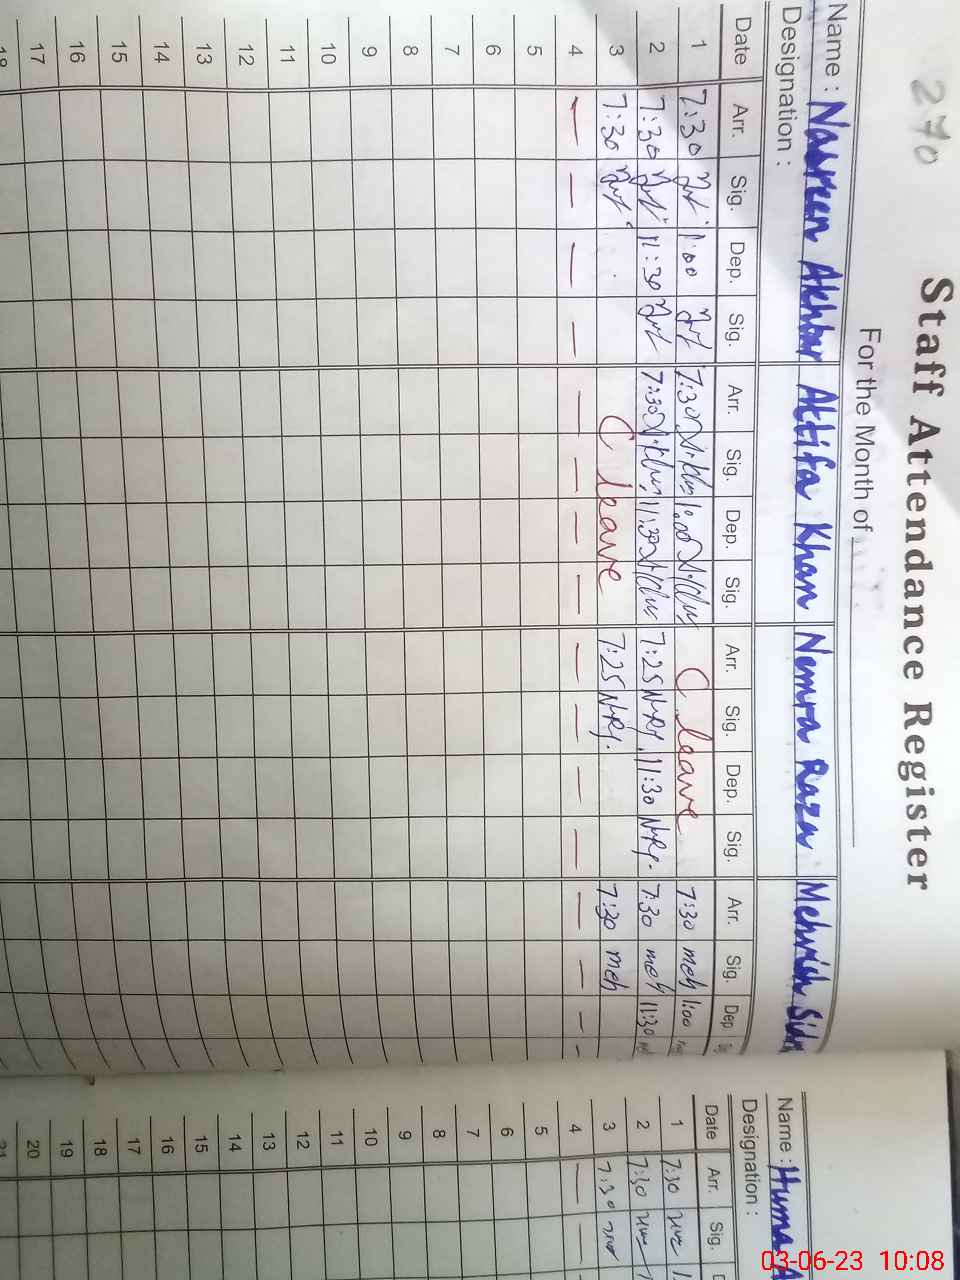 270
Staff Attendance Register
For the Month of
Name : Nasreen Akhtar Attifa Khan Nemra Raza Mehrish
Designation :
Date Arr. Sig. Dep. Sig. Arr. Sig. Dep. Sig. Arr. Sig. Dep. Sig. Arr. Sig. Dep
1 7:30 1:00 7:30 1:00 C leave 7:30 meh 1:00
2 7:30 11:30 7:30 11:30 7:25 11:30 7:30 meh 11:30
3 7:30 C leave 7:25 7:30 meh
4 — — — — — — — — — — — — — — —
5
6
7
8
9
10
11
12
13
14
15
16
17
18
Name : Huma A
Designation :
Date Arr. Sig.
1 7:30
2 7:30
3 7:30
4 — —
5
6
7
8
9
10
11
12
13
14
15
16
17
18
19
20
21
03-06-23 10:08